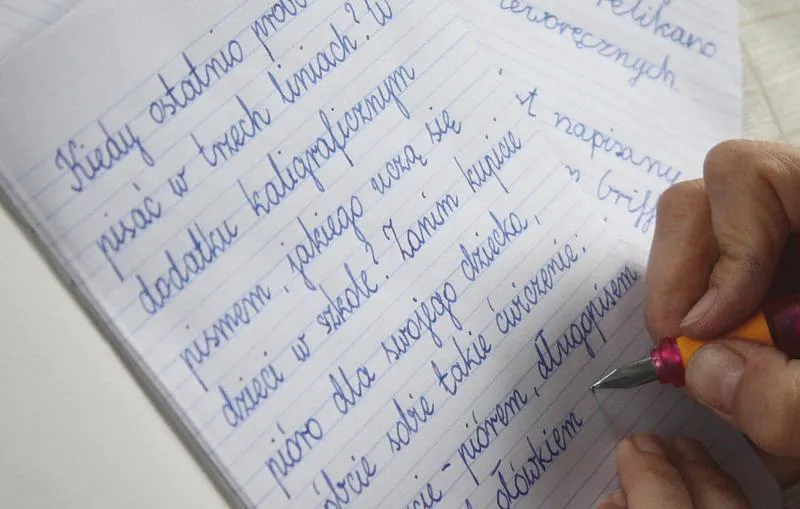 Kiedy ostatnio
pisać w trzech liniach? W
dodatku kaligraficznym
pismem, jakiego uczą się
dzieci w szkole? Zanim kupicie
pióro dla swojego dziecka,
sobie takie ćwiczenie:
piórem, długopisem
ołówkiem
napisany